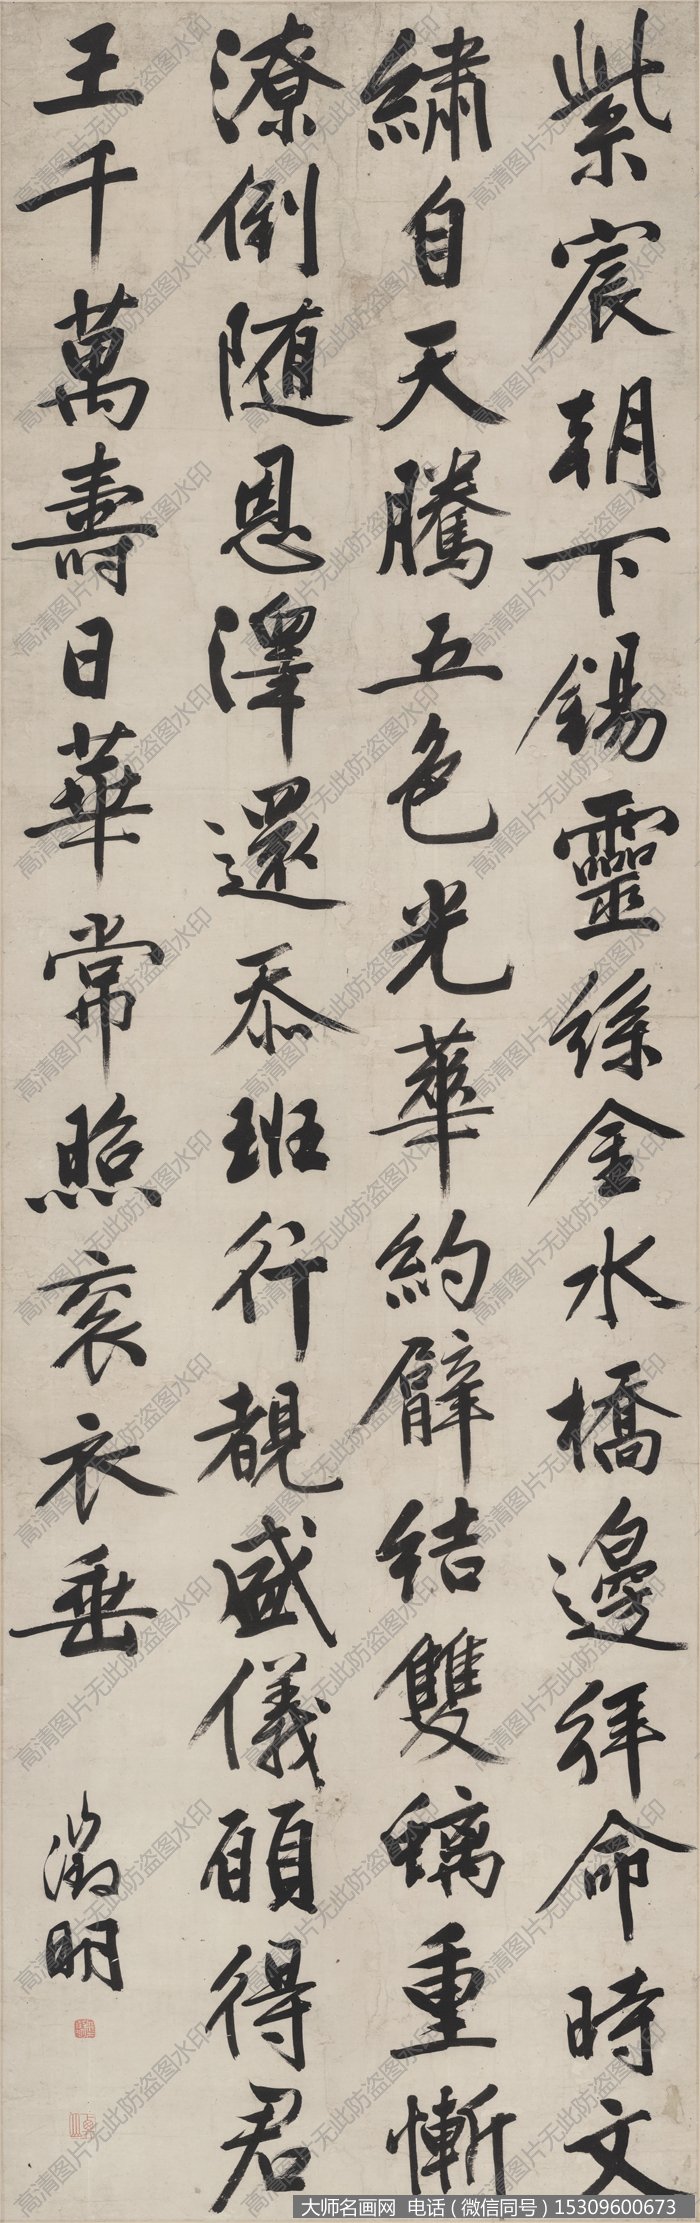 紫宸朝下錫靈絲金水橋邊拜命時文
繡自天騰五色光華約臂結雙螭重慚
潦倒隨恩澤還忝班行覩盛儀願得君
王千萬壽日華常照袞衣垂
徵明
高清图片无此防盗图水印
大师名画网 电话（微信同号）15309600673